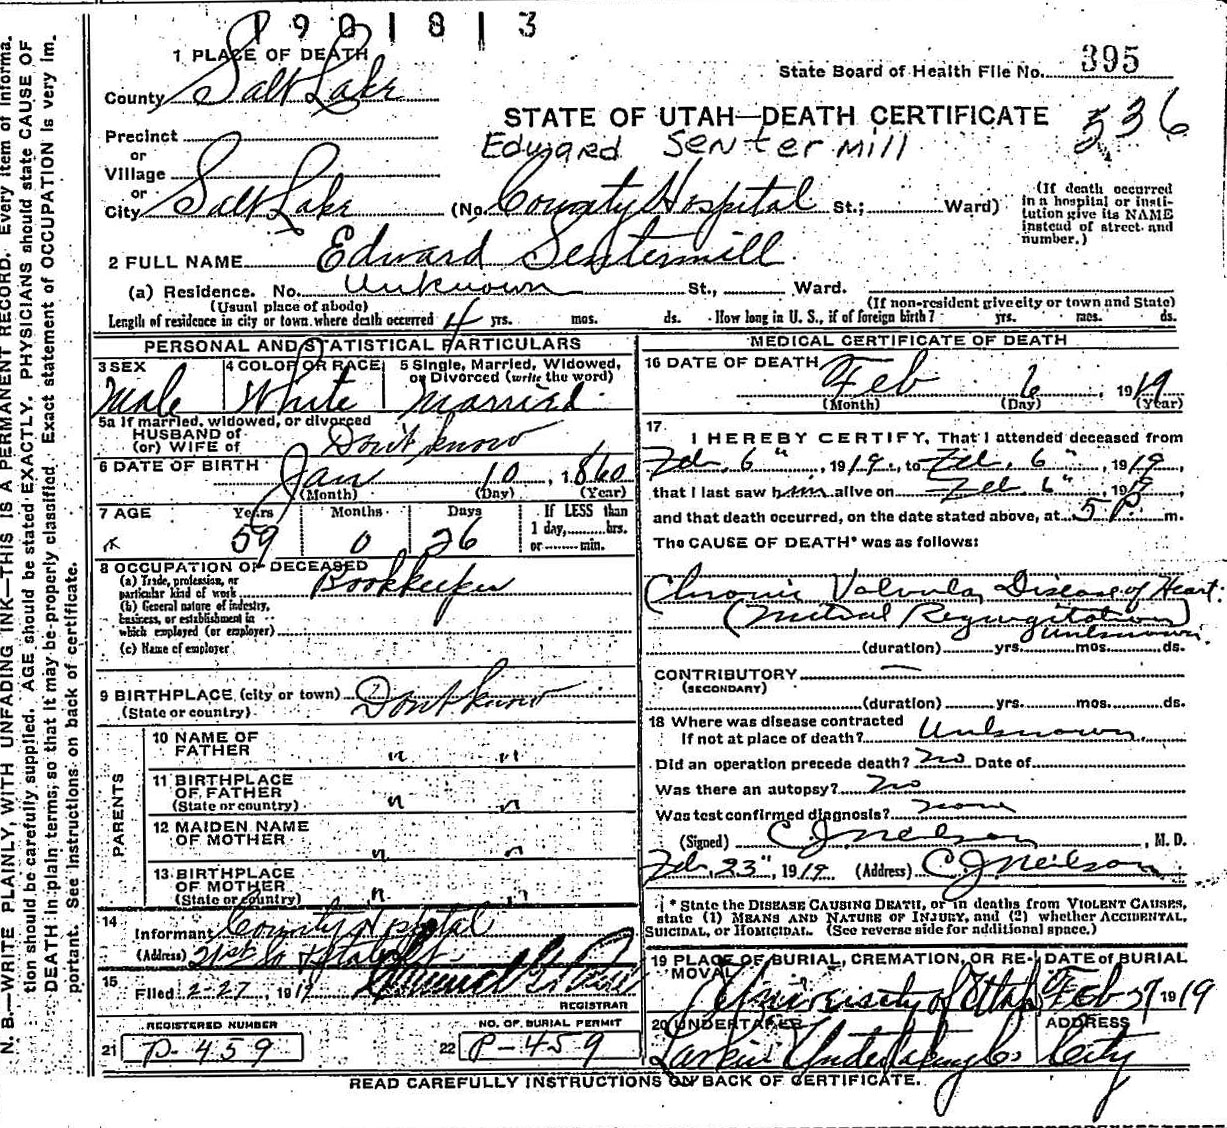 190813
1 PLACE OF DEATH
State Board of Health File No. 395
County Salt Lake
STATE OF UTAH—DEATH CERTIFICATE
336
Precinct
Edward Sentermill
or
Village
or
City Salt Lake (No. County Hospital St.; Ward)
(If death occurred in a hospital or institution give its NAME instead of street and number.)
2 FULL NAME Edward Sentermill
(a) Residence. No. Unknown St., Ward.
(Usual place of abode) (If non-resident give city or town and State)
Length of residence in city or town where death occurred 4 yrs. mos. ds. How long in U. S., if of foreign birth? yrs. mos. ds.
PERSONAL AND STATISTICAL PARTICULARS
3 SEX 4 COLOR OR RACE 5 Single, Married, Widowed,
or Divorced (write the word)
Male White Married
5a If married, widowed, or divorced
HUSBAND of
(or) WIFE of Don't know
6 DATE OF BIRTH Jan 10, 1860
(Month) (Day) (Year)
7 AGE Years Months Days If LESS than
1 day, hrs.
or min.
59 0 26
8 OCCUPATION OF DECEASED
(a) Trade, profession, or
particular kind of work Bookkeeper
(b) General nature of industry,
business, or establishment in
which employed (or employer)
(c) Name of employer
9 BIRTHPLACE (city or town) Don't know
(State or country)
PARENTS
10 NAME OF
FATHER " "
11 BIRTHPLACE
OF FATHER
(State or country) " "
12 MAIDEN NAME
OF MOTHER " "
13 BIRTHPLACE
OF MOTHER
(State or country) " "
14
Informant County Hospital
(Address) 21st So & State St.
15
Filed 2-27, 1919
REGISTRAR
REGISTERED NUMBER
21 P-459
NO. OF BURIAL PERMIT
22 P-459
MEDICAL CERTIFICATE OF DEATH
16 DATE OF DEATH Feb 6, 1919
(Month) (Day) (Year)
17
I HEREBY CERTIFY, That I attended deceased from
Feb. 6", 1919, to Feb. 6", 1919,
that I last saw him alive on Feb. 6", 1919,
and that death occurred, on the date stated above, at 5 P. m.
The CAUSE OF DEATH* was as follows:
Chronic Valvular Disease of Heart:
(Mitral Regurgitation)
unknown.
(duration) yrs. mos. ds.
CONTRIBUTORY —
(SECONDARY)
(duration) yrs. mos. ds.
18 Where was disease contracted
If not at place of death? Unknown.
Did an operation precede death? No Date of
Was there an autopsy? No
Was test confirmed diagnosis? none
(Signed) C J Neilson, M. D.
Feb. 23", 1919 (Address) C J Neilson
* State the DISEASE CAUSING DEATH, or in deaths from VIOLENT CAUSES,
state (1) MEANS AND NATURE OF INJURY, and (2) whether ACCIDENTAL,
SUICIDAL, or HOMICIDAL. (See reverse side for additional space.)
19 PLACE OF BURIAL, CREMATION, OR RE-
MOVAL DATE of BURIAL
University of Utah Feb 27 1919
20 UNDERTAKER ADDRESS
Larkin Undertaking Co City
READ CAREFULLY INSTRUCTIONS ON BACK OF CERTIFICATE.
N. B.—WRITE PLAINLY, WITH UNFADING INK—THIS IS A PERMANENT RECORD. Every item of informa-
tion should be carefully supplied. AGE should be stated EXACTLY. PHYSICIANS should state CAUSE OF
DEATH in plain terms, so that it may be properly classified. Exact statement of OCCUPATION is very im-
portant. See instructions on back of certificate.